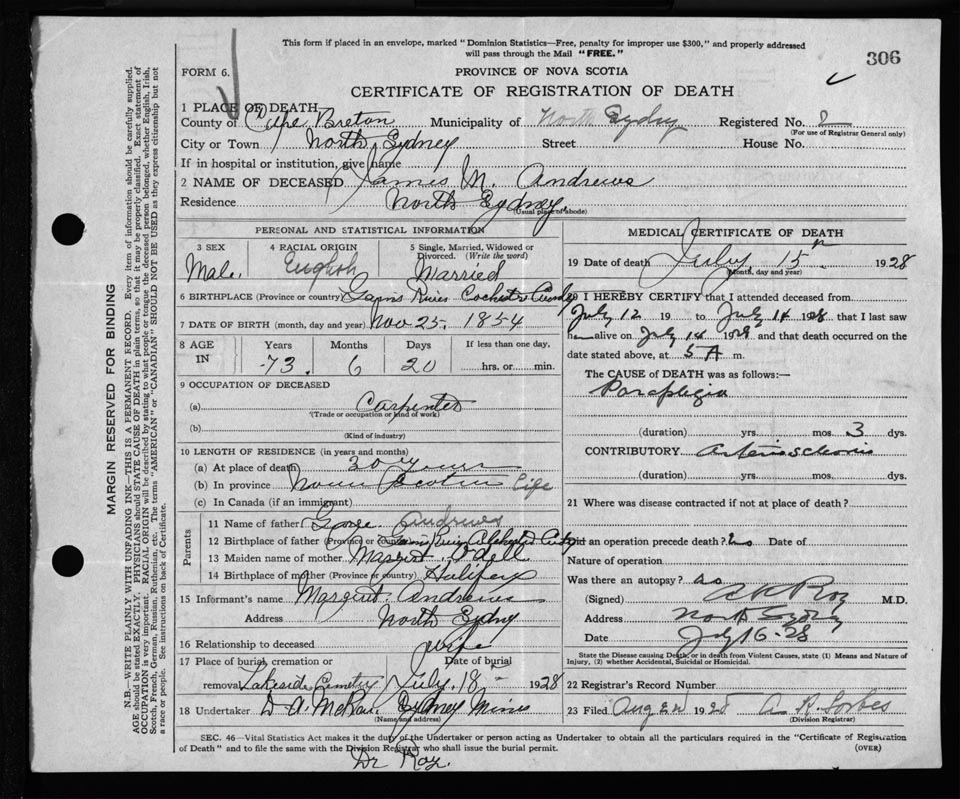 This form if placed in an envelope, marked "Dominion Statistics—Free, penalty for improper use $300," and properly addressed
will pass through the Mail "FREE."
306
FORM 6.
PROVINCE OF NOVA SCOTIA
CERTIFICATE OF REGISTRATION OF DEATH
1 PLACE OF DEATH
County of Cape Breton Municipality of North Sydney Registered No. 2
(For use of Registrar General only)
City or Town North Sydney Street House No.
If in hospital or institution, give name
2 NAME OF DECEASED James M. Andrews
Residence North Sydney
(Usual place of abode)
PERSONAL AND STATISTICAL INFORMATION
3 SEX 4 RACIAL ORIGIN 5 Single, Married, Widowed or
Divorced. (Write the word)
Male. English Married
6 BIRTHPLACE (Province or country) River
7 DATE OF BIRTH (month, day and year) Nov 25. 1854
8 AGE IN Years Months Days If less than one day,
73. 6 20 hrs. or min.
9 OCCUPATION OF DECEASED
(a) Carpenter
(Trade or occupation or kind of work)
(b)
(Kind of industry)
10 LENGTH OF RESIDENCE (in years and months)
(a) At place of death 30 Years
(b) In province Nova Scotia Life
(c) In Canada (if an immigrant)
Parents
11 Name of father George Andrews
12 Birthplace of father (Province or country)
13 Maiden name of mother Margret Odell
14 Birthplace of mother (Province or country) Halifax
15 Informant's name Margaret Andrews
Address North Sydney
16 Relationship to deceased wife
17 Place of burial, cremation or Date of burial
removal Lakeside Cemetry July. 18 1928
18 Undertaker D. A. McRae Sydney Mines
(Name and address)
MEDICAL CERTIFICATE OF DEATH
19 Date of death July 15 1928
(Month, day and year)
20 I HEREBY CERTIFY that I attended deceased from
July 12 19 to July 14 1928 that I last saw
h alive on July 14 1928 and that death occurred on the
date stated above, at 5 A m.
The CAUSE OF DEATH was as follows:—
Paraplegia
(duration) yrs. mos. 3 dys.
CONTRIBUTORY Arteriosclerosis
(duration) yrs. mos. dys.
21 Where was disease contracted if not at place of death?
Did an operation precede death? no Date of
Nature of operation
Was there an autopsy? no
(Signed) Roy M.D.
Address North Sydney
Date July 16-28
State the Disease causing Death, or in death from Violent Causes, state (1) Means and Nature of
Injury, (2) whether Accidental, Suicidal or Homicidal.
22 Registrar's Record Number
23 Filed Aug 2nd 1928 A. R. Forbes
(Division Registrar)
SEC. 46—Vital Statistics Act makes it the duty of the Undertaker or person acting as Undertaker to obtain all the particulars required in the "Certificate of Registration
of Death" and to file the same with the Division Registrar who shall issue the burial permit. (OVER)
Dr Roy.
MARGIN RESERVED FOR BINDING
N.B.—WRITE PLAINLY WITH UNFADING INK—THIS IS A PERMANENT RECORD. Every item of information should be carefully supplied.
AGE should be stated EXACTLY. PHYSICIANS should STATE CAUSE OF DEATH in plain terms, so that it may be properly classified. Exact statement of
OCCUPATION is very important. RACIAL ORIGIN will be described by stating to what people or tongue the deceased person belonged, whether English, Irish,
Scotch, French, German, Russian, Ruthenian, etc. The terms "AMERICAN" or "CANADIAN" SHOULD NOT BE USED as they express citizenship but not
a race or people. See instructions on back of Certificate.